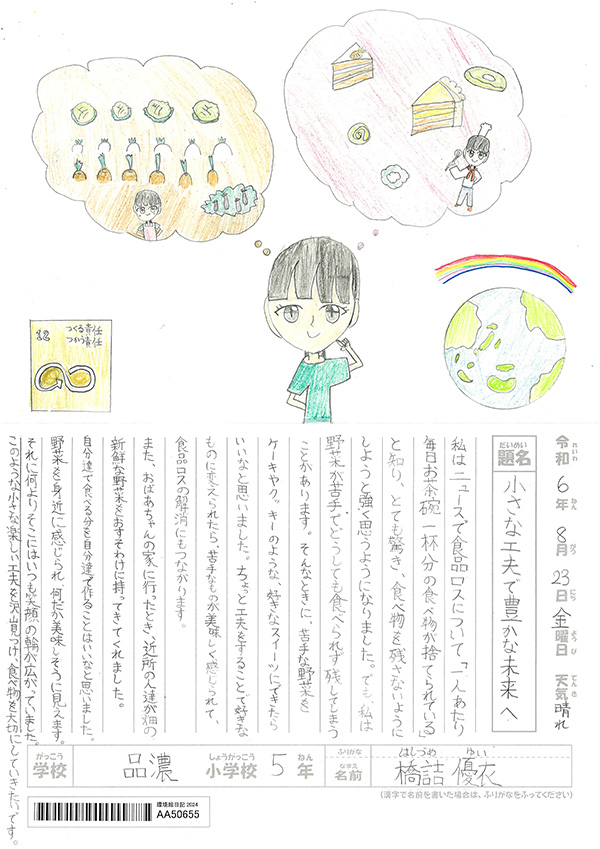 12 つくる責任
つかう責任
令和6年8月23日金曜日 天気 晴れ
れいわ ねん がつ にち ようび てんき
だいめい
題名 小さな工夫で豊かな未来へ
私はニュースで食品ロスについて、「一人あたり
毎日お茶碗一杯分の食べ物が捨てられている」
と知り、とても驚き、食べ物を残さないように
しようと強く思うようになりました。でも、私は
野菜が苦手でどうしても食べられず残してしまう
ことがあります。そんなときに、苦手な野菜を
ケーキやクッキーのような、好きなスイーツにできたら
いいなと思いました。ちょっと工夫をすることで好きな
ものに変えられたら、苦手なものが美味しく感じられて、
食品ロスの解消にもつながります。
また、おばあちゃんの家に行ったとき、近所の人達が畑の
新鮮な野菜をおすそわけに持ってきてくれました。
自分達で食べる分を自分達で作ることはいいなと思いました。
野菜を身近に感じられ、何だか美味しそうに見えます。
それに何よりそこにはいつも笑顔の輪が広がっていました。
このような小さな楽しい工夫を沢山見つけ、食べ物を大切にしていきたいです。
がっこう しょうがっこう ねん ふりがな はしづめ ゆい
学校 品濃 小学校 5年 なまえ 名前 橋詰 優衣
(漢字で名前を書いた場合は、ふりがなをふってください)
環境絵日記 2024
AA50655